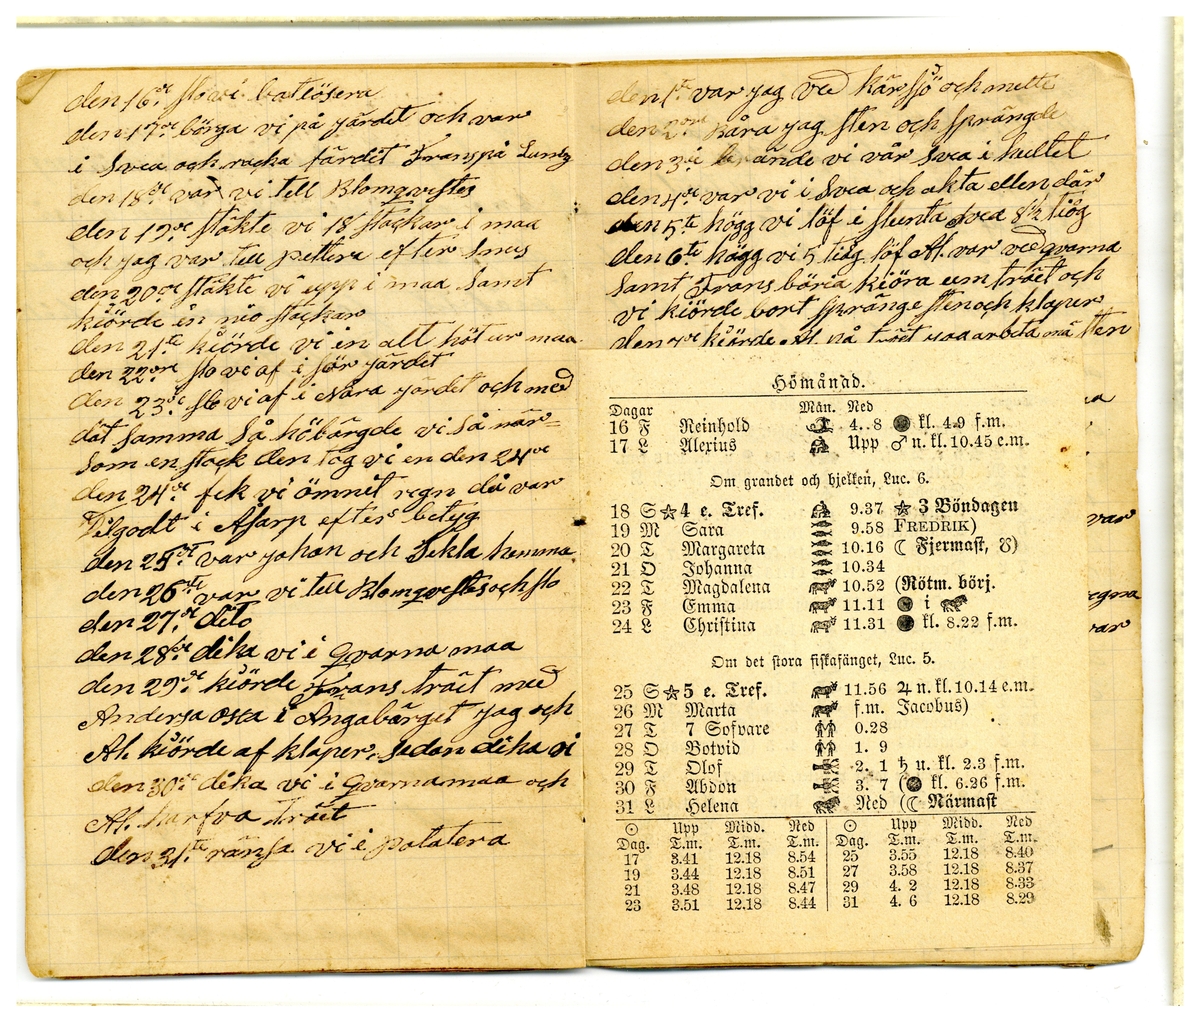 den 16de slo vi batiösera
den 17de börga vi på järdet och var
i Svea och racka färdit Frans på
den 18de var vi till Blomqvistes
den 19de stäkte vi 18 stackar i maa
och jag var tell pettera efter Smes
den 20de stäkte vi upp i maa samt
kiörde in nio stackar
den 21te kiörde vi in alt höt ur maa
den 22dre slo vi af i sör järdet
den 23de slo vi af i Nåra järdet och med
dät samma så höbärgde vi så när=
som en stack den tog vi en den 24de
den 24de fek vi ömnit regn då var
Filgodt i Asarp efters betyg
den 25de var johan och Tekla hemma
den 26te var vi tell Blomqvistes och slo
den 27de Dito
den 28de dika vi i Qvarna maa
den 29de kiörde Frans träet med
Andersa Oska i Angabärget jag och
Al. kiörde af klaper, sedan dika vi
den 30de dika vi i Qvarnamaa och
Al. harfva träet
den 31te ränsa vi i patatera
den 1ta var jag ved kärsjö och mette
den 2dra Båra jag sten och sprängde
den 3de ände vi vår Svea i hultet
den 4de var vi i Svea och akta ellen där
den 5te högg vi löf i slenta Svea 8½ tiög
den 6te högg vi 5 tiög löf Al. var ved qvarna
samt Frans böria kiöra um träet och
vi kiörde bort spränge sten och klaper
den 7de kiörde Al. på träet jag arbeta mä sten
Hömånad.
Dagar Mån. Ned
16 F Reinhold 4. 8 kl. 4.9 f.m.
17 L Alexius Upp ♂ n. kl. 10.45 e.m.
Om grandet och bjelken, Luc. 6.
18 S ☆ 4 e. Tref. 9.37 ☆ 3 Böndagen
19 M Sara 9.58 FREDRIK)
20 T Margareta 10.16 ☾ Fjermast, ☋)
21 O Johanna 10.34
22 T Magdalena 10.52 (Rötm. börj.
23 F Emma 11.11 i
24 L Christina 11.31 kl. 8.22 f.m.
Om det stora fiskafänget, Luc. 5.
25 S ☆ 5 e. Tref. 11.56 ♃ n. kl. 10.14 e.m.
26 M Marta f.m. Jacobus)
27 T 7 Sofvare 0.28
28 O Botvid 1. 9
29 T Olof 2. 1 ♄ u. kl. 2.3 f.m.
30 F Abdon 3. 7 ( kl. 6.26 f.m.
31 L Helena Ned (☾ Närmast
☉ Upp Midd. Ned ☉ Upp Midd. Ned
Dag. T.m. T.m. T.m. Dag. T.m. T.m. T.m.
17 3.41 12.18 8.54 25 3.55 12.18 8.40
19 3.44 12.18 8.51 27 3.58 12.18 8.37
21 3.48 12.18 8.47 29 4. 2 12.18 8.33
23 3.51 12.18 8.44 31 4. 6 12.18 8.29
var
egna
var